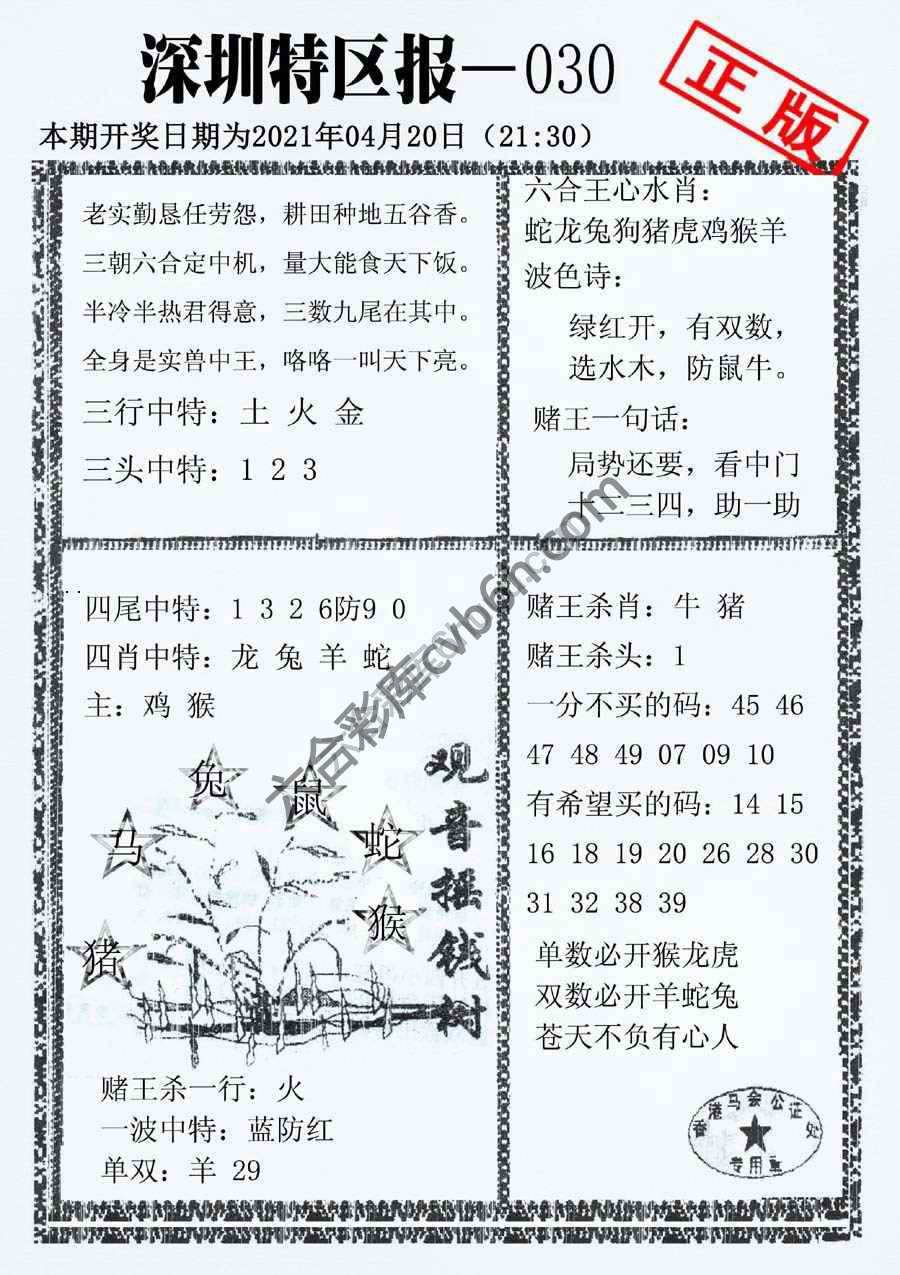 深圳特区报—030
正版
本期开奖日期为2021年04月20日（21:30）
老实勤恳任劳怨，耕田种地五谷香。
三朝六合定中机，量大能食天下饭。
半冷半热君得意，三数九尾在其中。
全身是实兽中王，咯咯一叫天下亮。
三行中特：土 火 金
三头中特：1 2 3
六合王心水肖：
蛇龙兔狗猪虎鸡猴羊
波色诗：
绿红开，有双数，
选水木，防鼠牛。
赌王一句话：
局势还要，看中门
十二三四，助一助
四尾中特：1 3 2 6防9 0
四肖中特：龙 兔 羊 蛇
主：鸡 猴
兔
鼠
马
蛇
猴
猪
观音摇钱树
赌王杀一行：火
一波中特：蓝防红
单双：羊 29
赌王杀肖：牛 猪
赌王杀头：1
一分不买的码：45 46
47 48 49 07 09 10
有希望买的码：14 15
16 18 19 20 26 28 30
31 32 38 39
单数必开猴龙虎
双数必开羊蛇兔
苍天不负有心人
香港马会公证处
专用章
六合彩库cvb6h.com